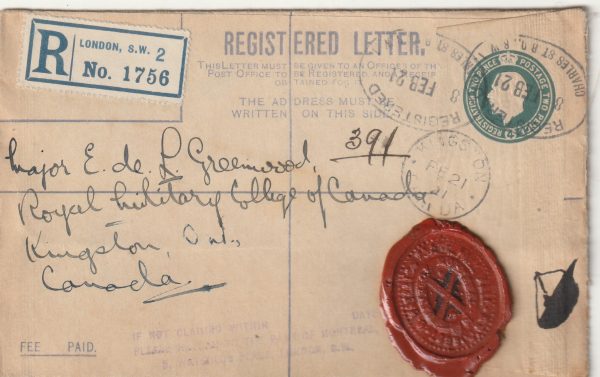 R
LONDON, S.W. 2
No. 1756
REGISTERED LETTER.
THIS LETTER MUST BE GIVEN TO AN OFFICER OF THE
POST OFFICE TO BE REGISTERED AND A RECEIPT
OBTAINED FOR IT.
THE ADDRESS MUST BE
WRITTEN ON THIS SIDE.
REGISTERED
FEB 21
CHARLES ST B.O. S.W.
FEB 21
REGISTRATION TWO PENCE POSTAGE TWO PENCE
391
KINGSTON
FE 21
21
Major E. de L Greenwood,
Royal Military College of Canada
Kingston, Ont.,
Canada
IF NOT CLAIMED WITHIN DAYS
PLEASE BANK OF MONTREAL,
9, WATERLOO PLACE, LONDON, S.W.
FEE PAID.